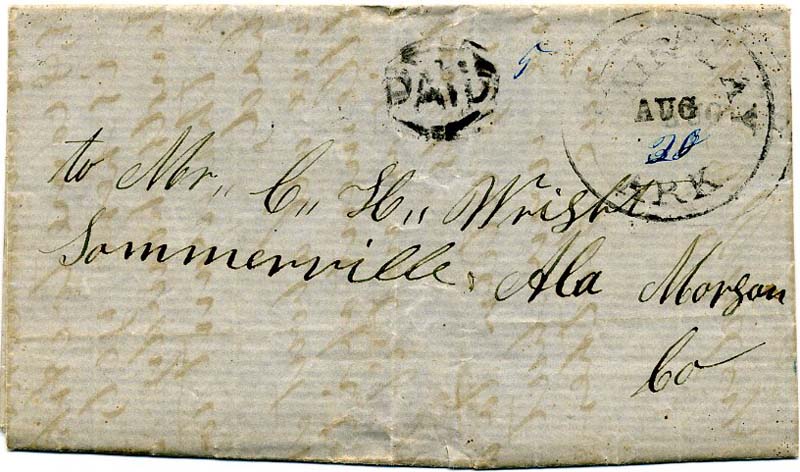 PAID
5
AUG
20
ARK
to Mr,, C,, H,, Wright
Sommerville, Ala Morgan
Co